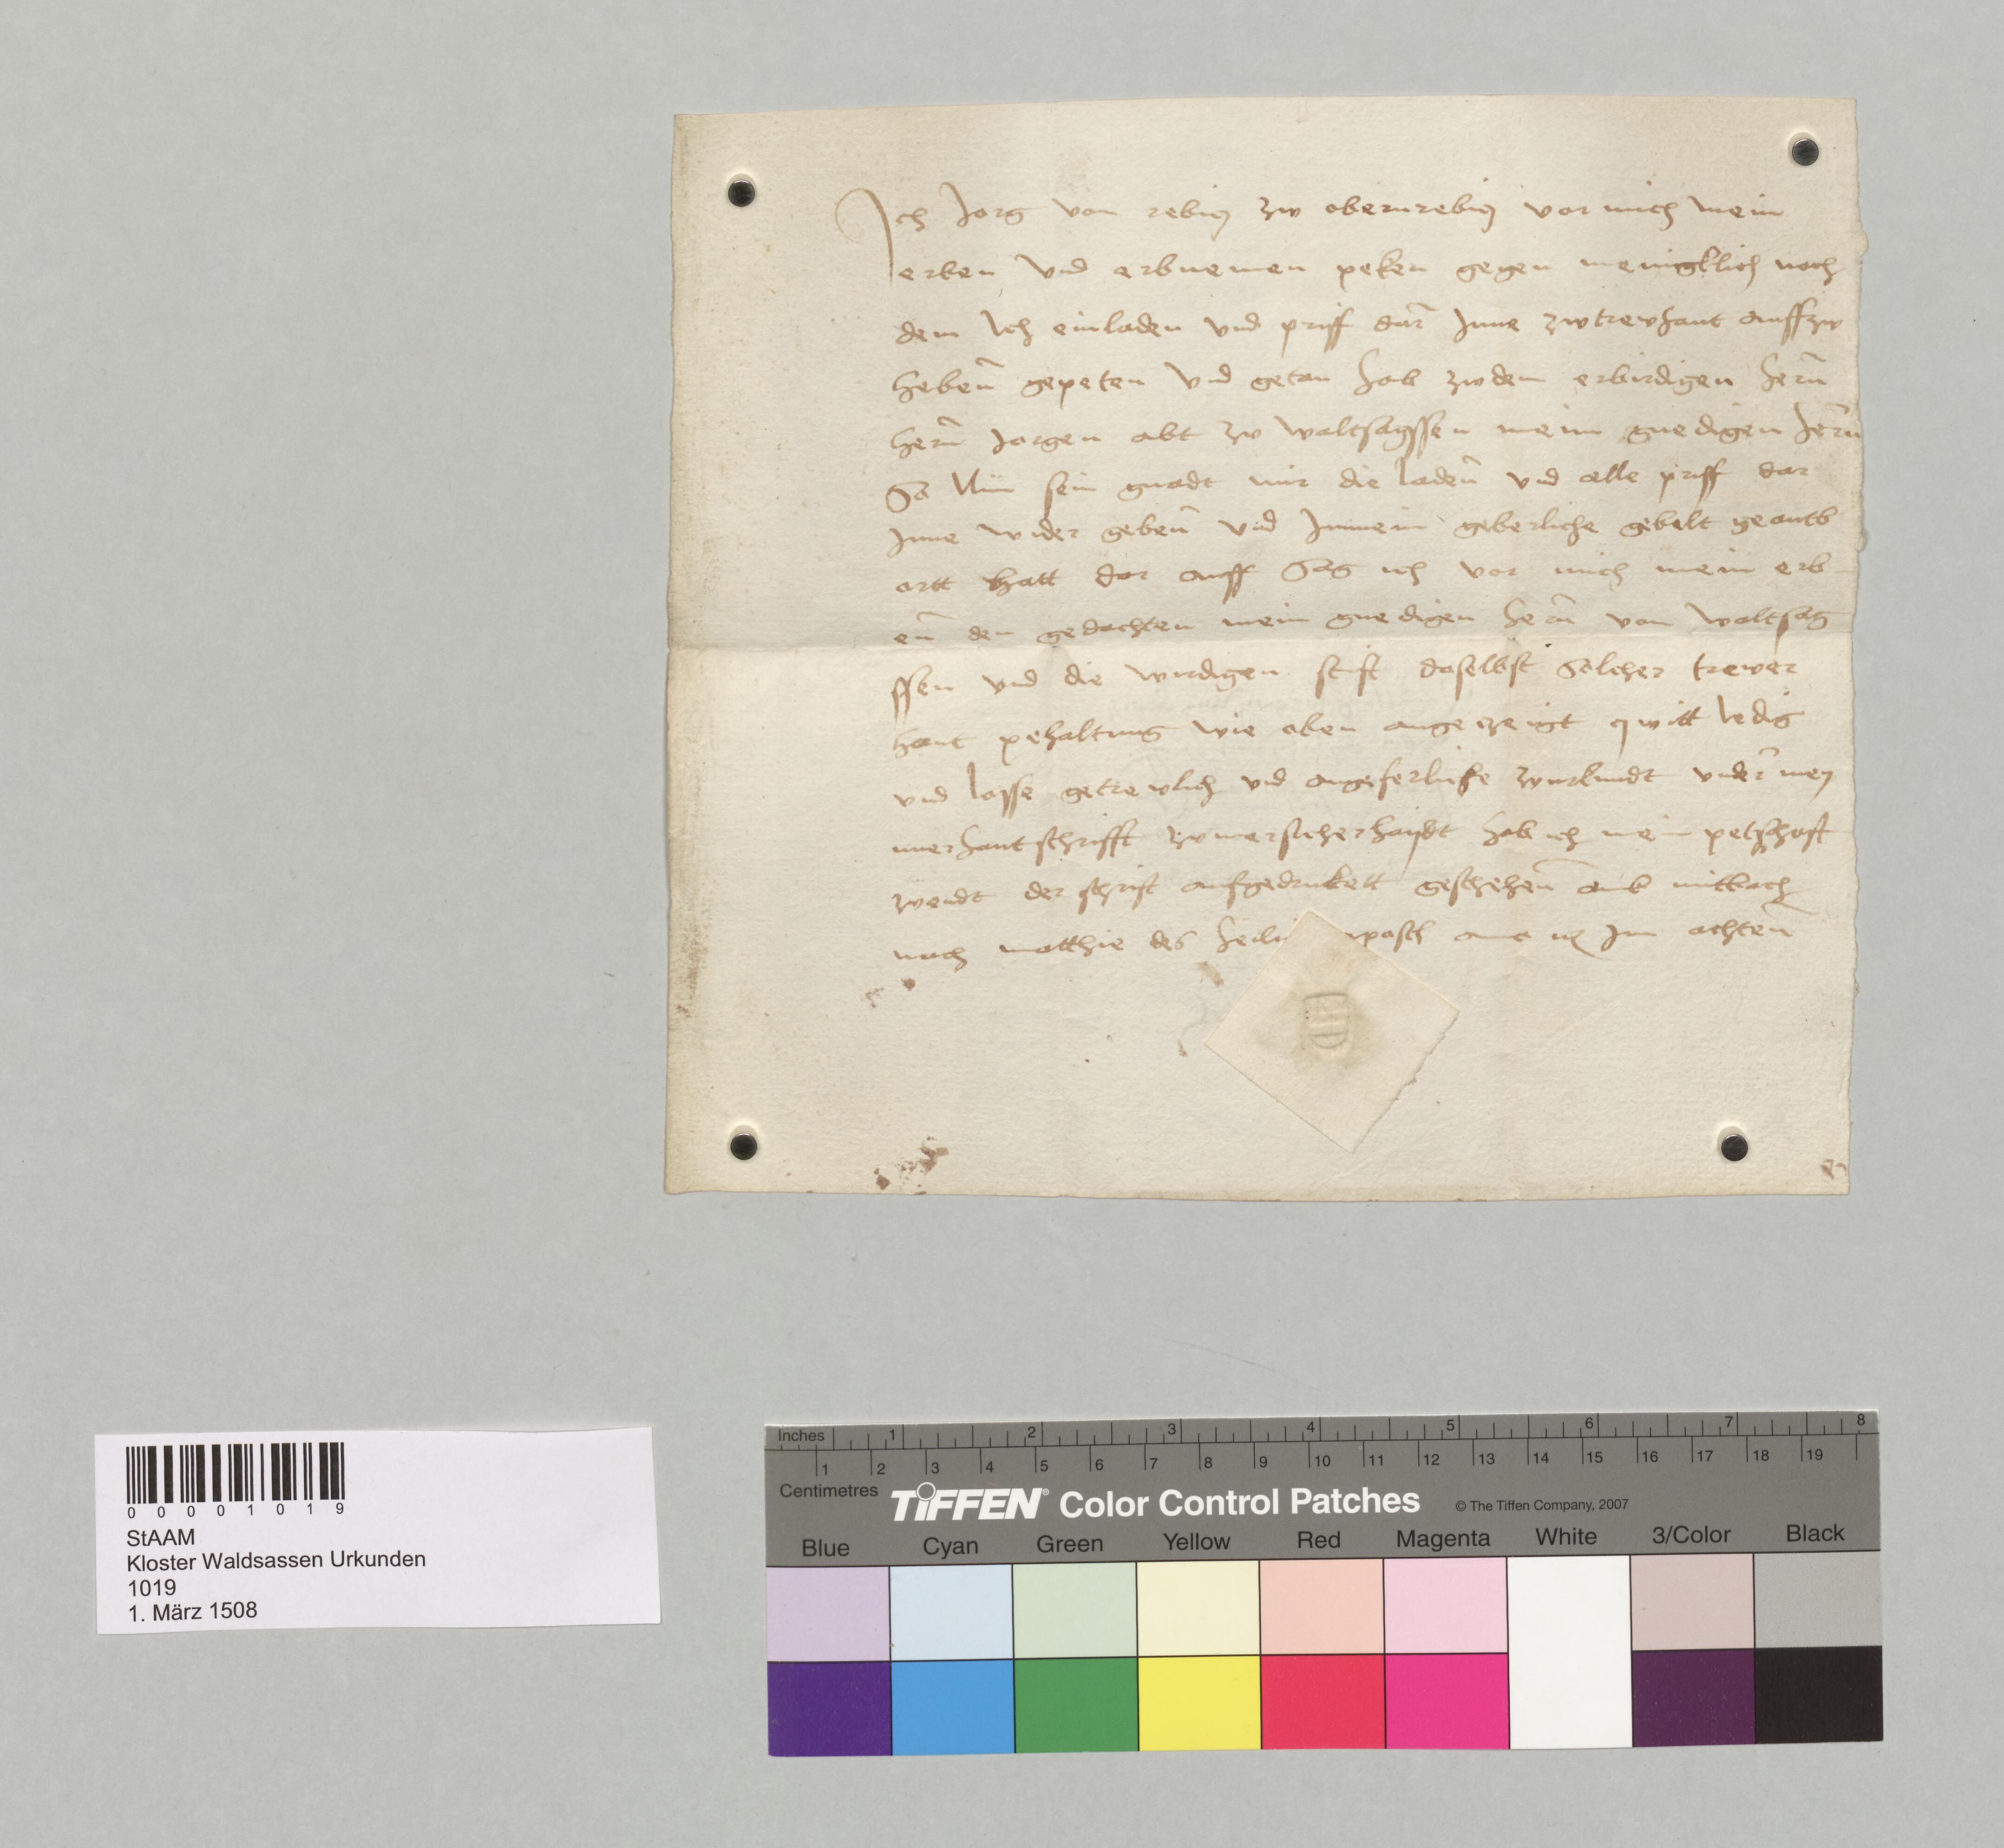 Ich Jorg von rebitz zw obernrebitz vor mich mein
erben vnd erbnemen peken gegen meingklich noch
dem Ich ein laden vnd priff dar Inne zw trewhant auffzw
heben gepeten vnd getan hab zw dem erbirdigen hern
hern Jorgen abt zw waltsagssen meim gnedigen hern
So Nün sein gnadt mir die laden vnd alle priff dar
Inne wider geben vnd In mein geberliche gebalt geantb
ortt hatt dar auff Sag ich vor mich mein erb
en den gedachten mein gnedigen hern von Waltsag
ssen vnd die wirdigen stift daselbst Solcher trewer
hant pehaltung wie oben angezeigt qwitt ledig
vnd losse getrewlich vnd angeferliche zw urkundt vnder mey
ner hantschrifft zw mer sicherhaydt hab ich mein petschaft
zw endt der schrift aufgedruckett geschehen am mittboch
noch matthie des heili apostl Im achten
0 0 0 0 1 0 1 9
StAAM
Kloster Waldsassen Urkunden
1019
1. März 1508
Inches 1 2 3 4 5 6 7 8
1 2 3 4 5 6 7 8 9 10 11 12 13 14 15 16 17 18 19
Centimetres
TIFFEN® Color Control Patches © The Tiffen Company, 2007
Blue Cyan Green Yellow Red Magenta White 3/Color Black